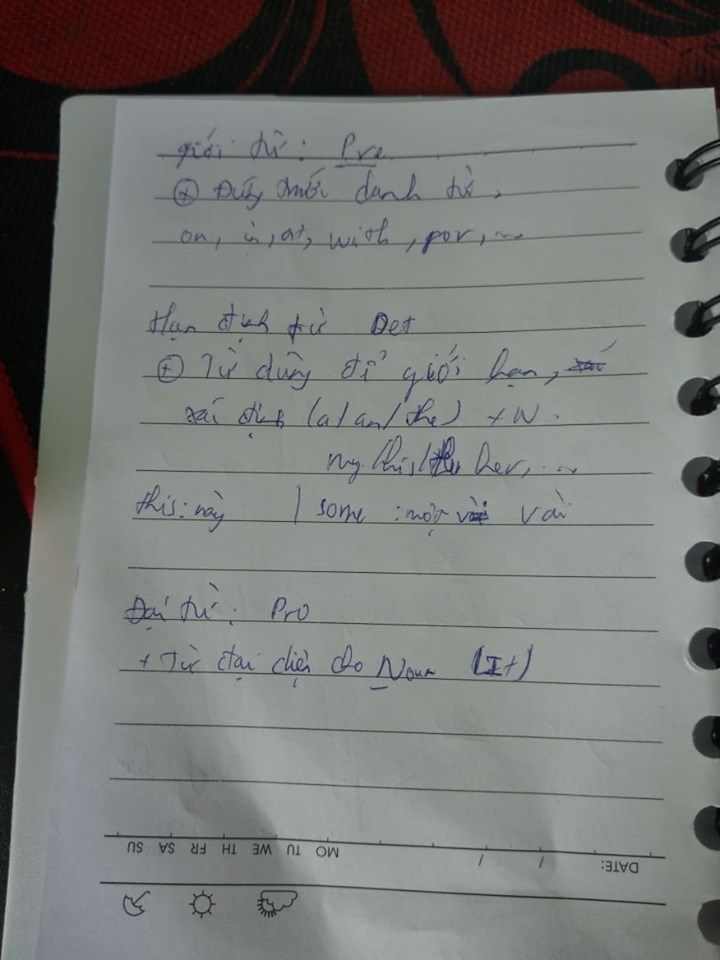 giới từ : Pre
+ Đứng trước danh từ,
on, in, at, with, por, ...
Hạn định từ Det
+ Từ dùng để giới hạn,
xác định (a/an/the) + N.
my/his/ her, ...
this: này | some : một vài
Đại từ: Pro
+ Từ đại diện cho Noun (It)
DATE: / / MO TU WE TH FR SA SU